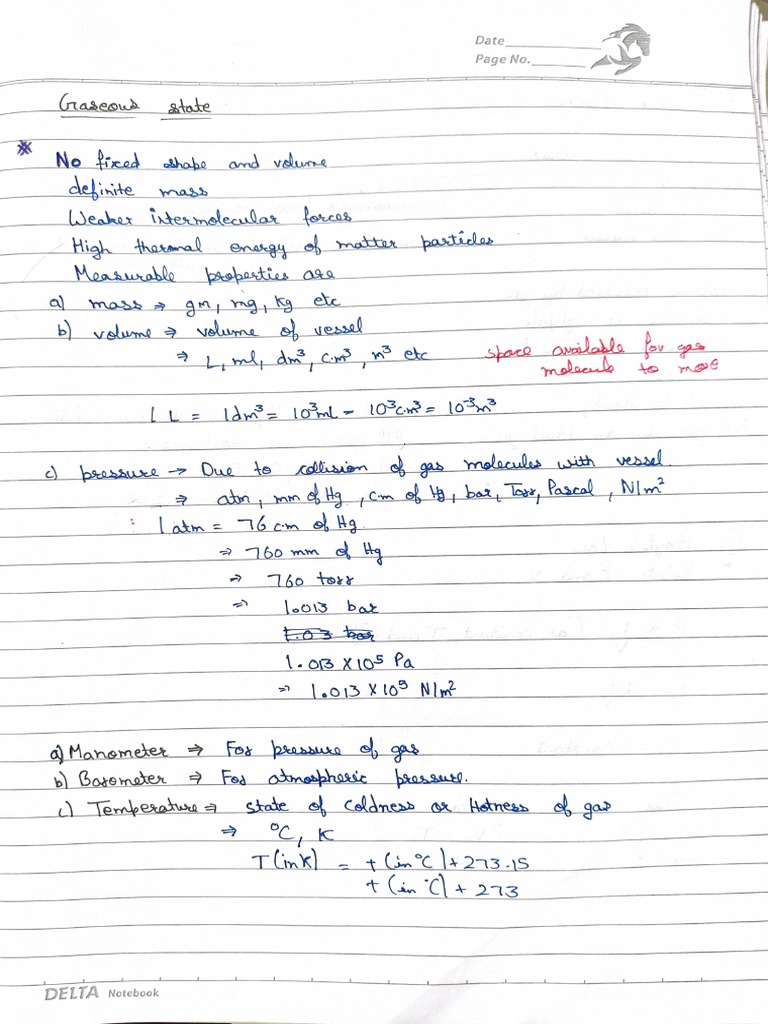 Date
Page No.
Gaseous state
No fixed shape and volume
definite mass
Weaker intermolecular forces
High thermal energy of matter particles
Measurable properties are
a) mass → gm, mg, kg etc
b) volume ⇒ volume of vessel
⇒ L, ml, dm³, cm³, m³ etc space available for gas
molecule to move
1 L = 1dm³ = 10³ml - 10³cm³ = 10⁻³m³
c) pressure → Due to collision of gas molecules with vessel.
⇒ atm, mm of Hg, cm of Hg, bar, Torr, Pascal, N/m²
1 atm = 76 cm of Hg
⇒ 760 mm of Hg
⇒ 760 torr
⇒ 1.013 bar
1.03 bar
1.013 X 10⁵ Pa
⇒ 1.013 X 10⁵ N/m²
a) Manometer ⇒ For pressure of gas
b) Barometer ⇒ For atmospheric pressure.
c) Temperature ⇒ state of coldness or Hotness of gas
⇒ °C, K
T (in K) = t (in °C) + 273.15
t (in °C) + 273
DELTA Notebook